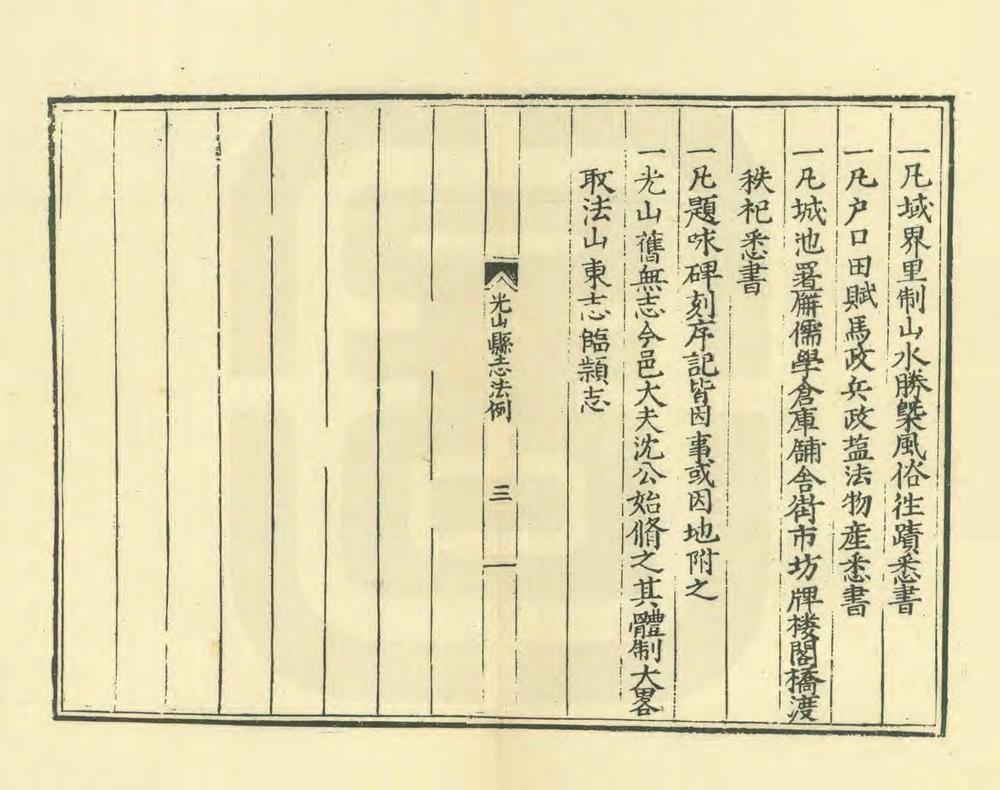 一凡域界里制山水勝槩風俗徃蹟悉書
一凡户口田賦馬政兵政塩法物産悉書
一凡城池署廨儒學倉庫舗舎街市坊牌楼閣橋渡
秩祀悉書
一凡題咏碑刻序記皆因事或因地附之
一光山舊無志今邑大夫沈公始脩之其體制大畧
取法山東志臨頴志
光山縣志法例
三